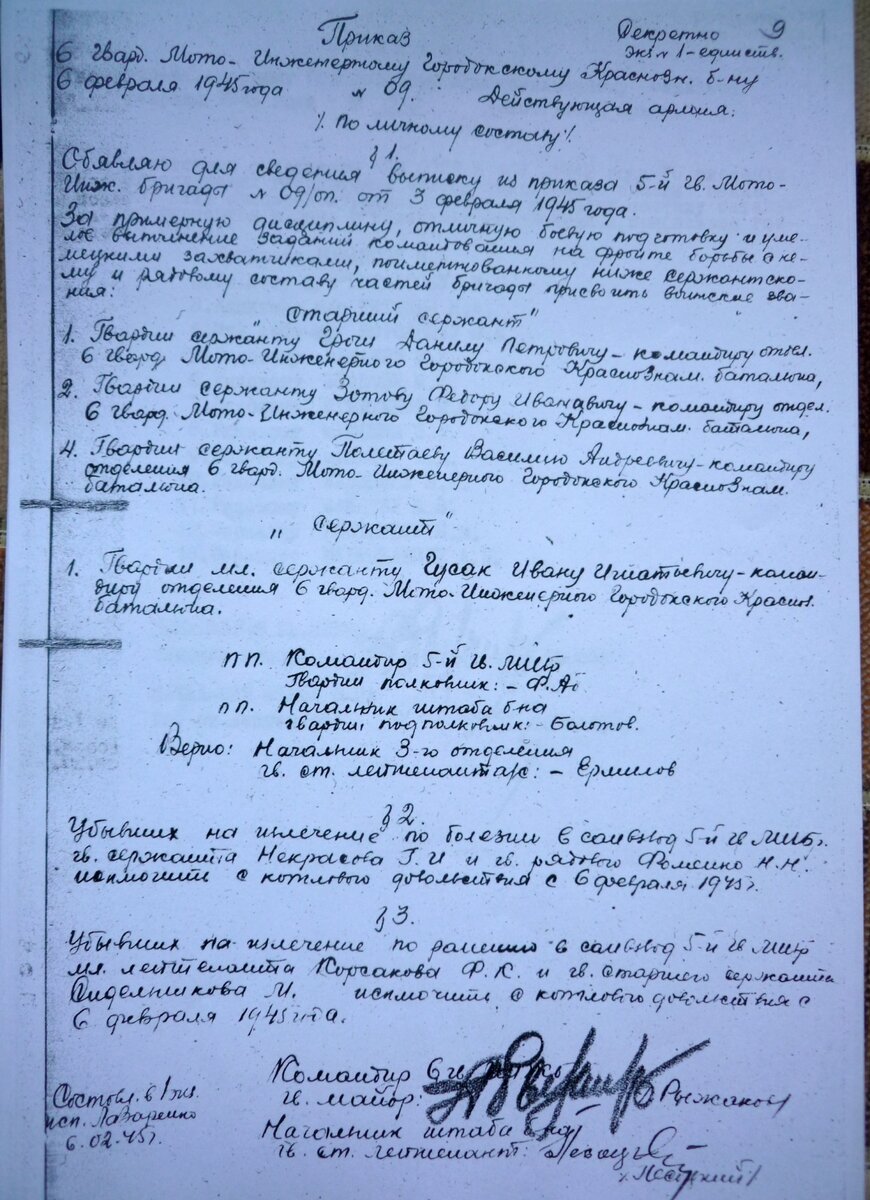 Приказ
Секретно 9
экз № 1-единств.
6 гвард. Мото-Инженерному Городокскому Краснозн. б-ну
6 февраля 1945 года № 09. Действующая армия.
/. По личному составу /.
§ 1.
Объявляю для сведения выписку из приказа 5-й гв. Мото-
Инж. бригады № 09/оп. от 3 февраля 1945 года.
За примерную дисциплину, отличную боевую подготовку и уме-
лое выполнение заданий командования на фронте борьбы с не-
мецкими захватчиками, поименнованному ниже сержантско-
му и рядовому составу частей бригады присвоить воинские зва-
ния:
„Старший сержант"
1. Гвардии сержанту Данилу Петровичу – командиру отдел.
6 гвард. Мото-Инженерного Городокского Краснознам. баталиона,
2. Гвардии сержанту Зотову Федору Ивановичу – командиру отдел.
6 гвард. Мото-Инженерного Городокского Краснознам. баталиона,
4. Гвардии сержанту Полетаеву Василию Андреевичу – командиру
отделения 6 гвард. Мото-Инженерного Городокского Краснознам.
баталиона.
„сержант"
1. Гвардии мл. сержанту Гусак Ивану Игнатьевичу – коман-
диру отделения 6 гвард. Мото-Инженерного Городокского Краснозн.
баталиона.
п п. Командир 5-й гв. МИбр
Гвардии полковник: –
п п. Начальник штаба б-на
гвардии подполковник: – Болотов.
Верно: Начальник 3-го отделения
гв. ст. лейтенант – Ермилов
§ 2.
Убывших на излечение по болезни в санвзвод 5-й гв МИбр.
гв. сержанта Некрасова Г. И и гв. рядового Фоменко Н. Н.
исключить с котлового довольствия с 6 февраля 1945 г.
§ 3.
Убывших на излечение по ранению в санвзвод 5-й гв МИбр
мл. лейтенанта Корсакова Ф. К. и гв. старшего сержанта
Сидельникова М. исключить с котлового довольствия с
6 февраля 1945 года.
Командир 6 гв
гв. майор: Рыжаков
Составл. в 1 экз.
исп. Лазаренко
6. 02. 45 г.
Начальник штаба б-на
гв. ст. лейтенант: